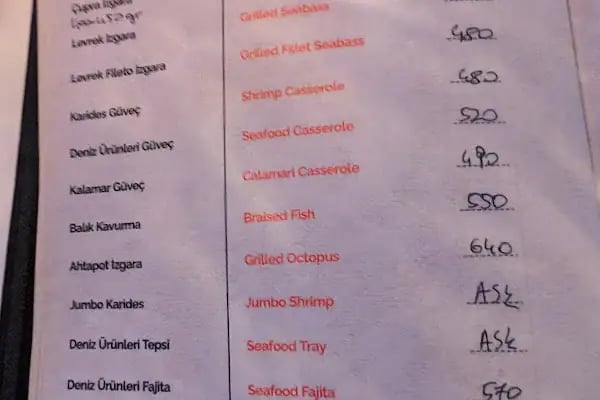 Çupra Izgara
Levrek Izgara Grilled Seabass
Levrek Fileto Izgara Grilled Filet Seabass 480
Karides Güveç Shrimp Casserole 480
Deniz Ürünleri Güveç Seafood Casserole 520
Kalamar Güveç Calamari Casserole 490
Balık Kavurma Braised Fish 550
Ahtapot Izgara Grilled Octopus 640
Jumbo Karides Jumbo Shrimp ASK
Deniz Ürünleri Tepsi Seafood Tray ASK
Deniz Ürünleri Fajita Seafood Fajita 570